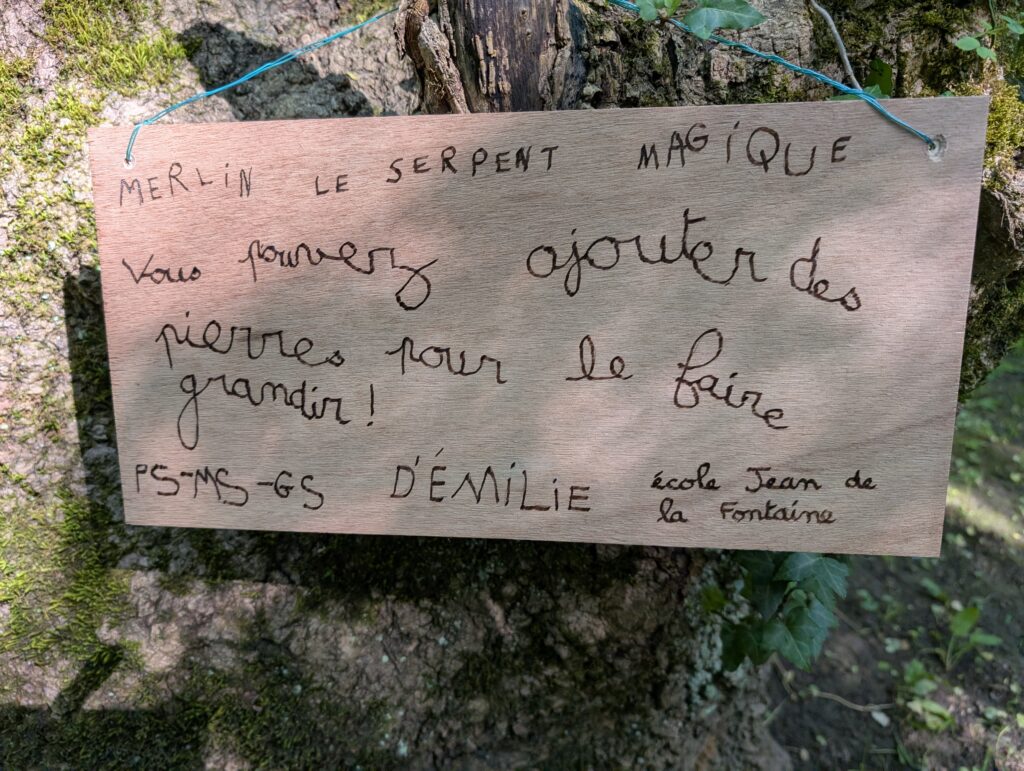 MERLIN LE SERPENT MAGIQUE
Vous pouvez ajouter des
pierres pour le faire
grandir !
PS-MS-GS D'ÉMILIE école Jean de
la Fontaine